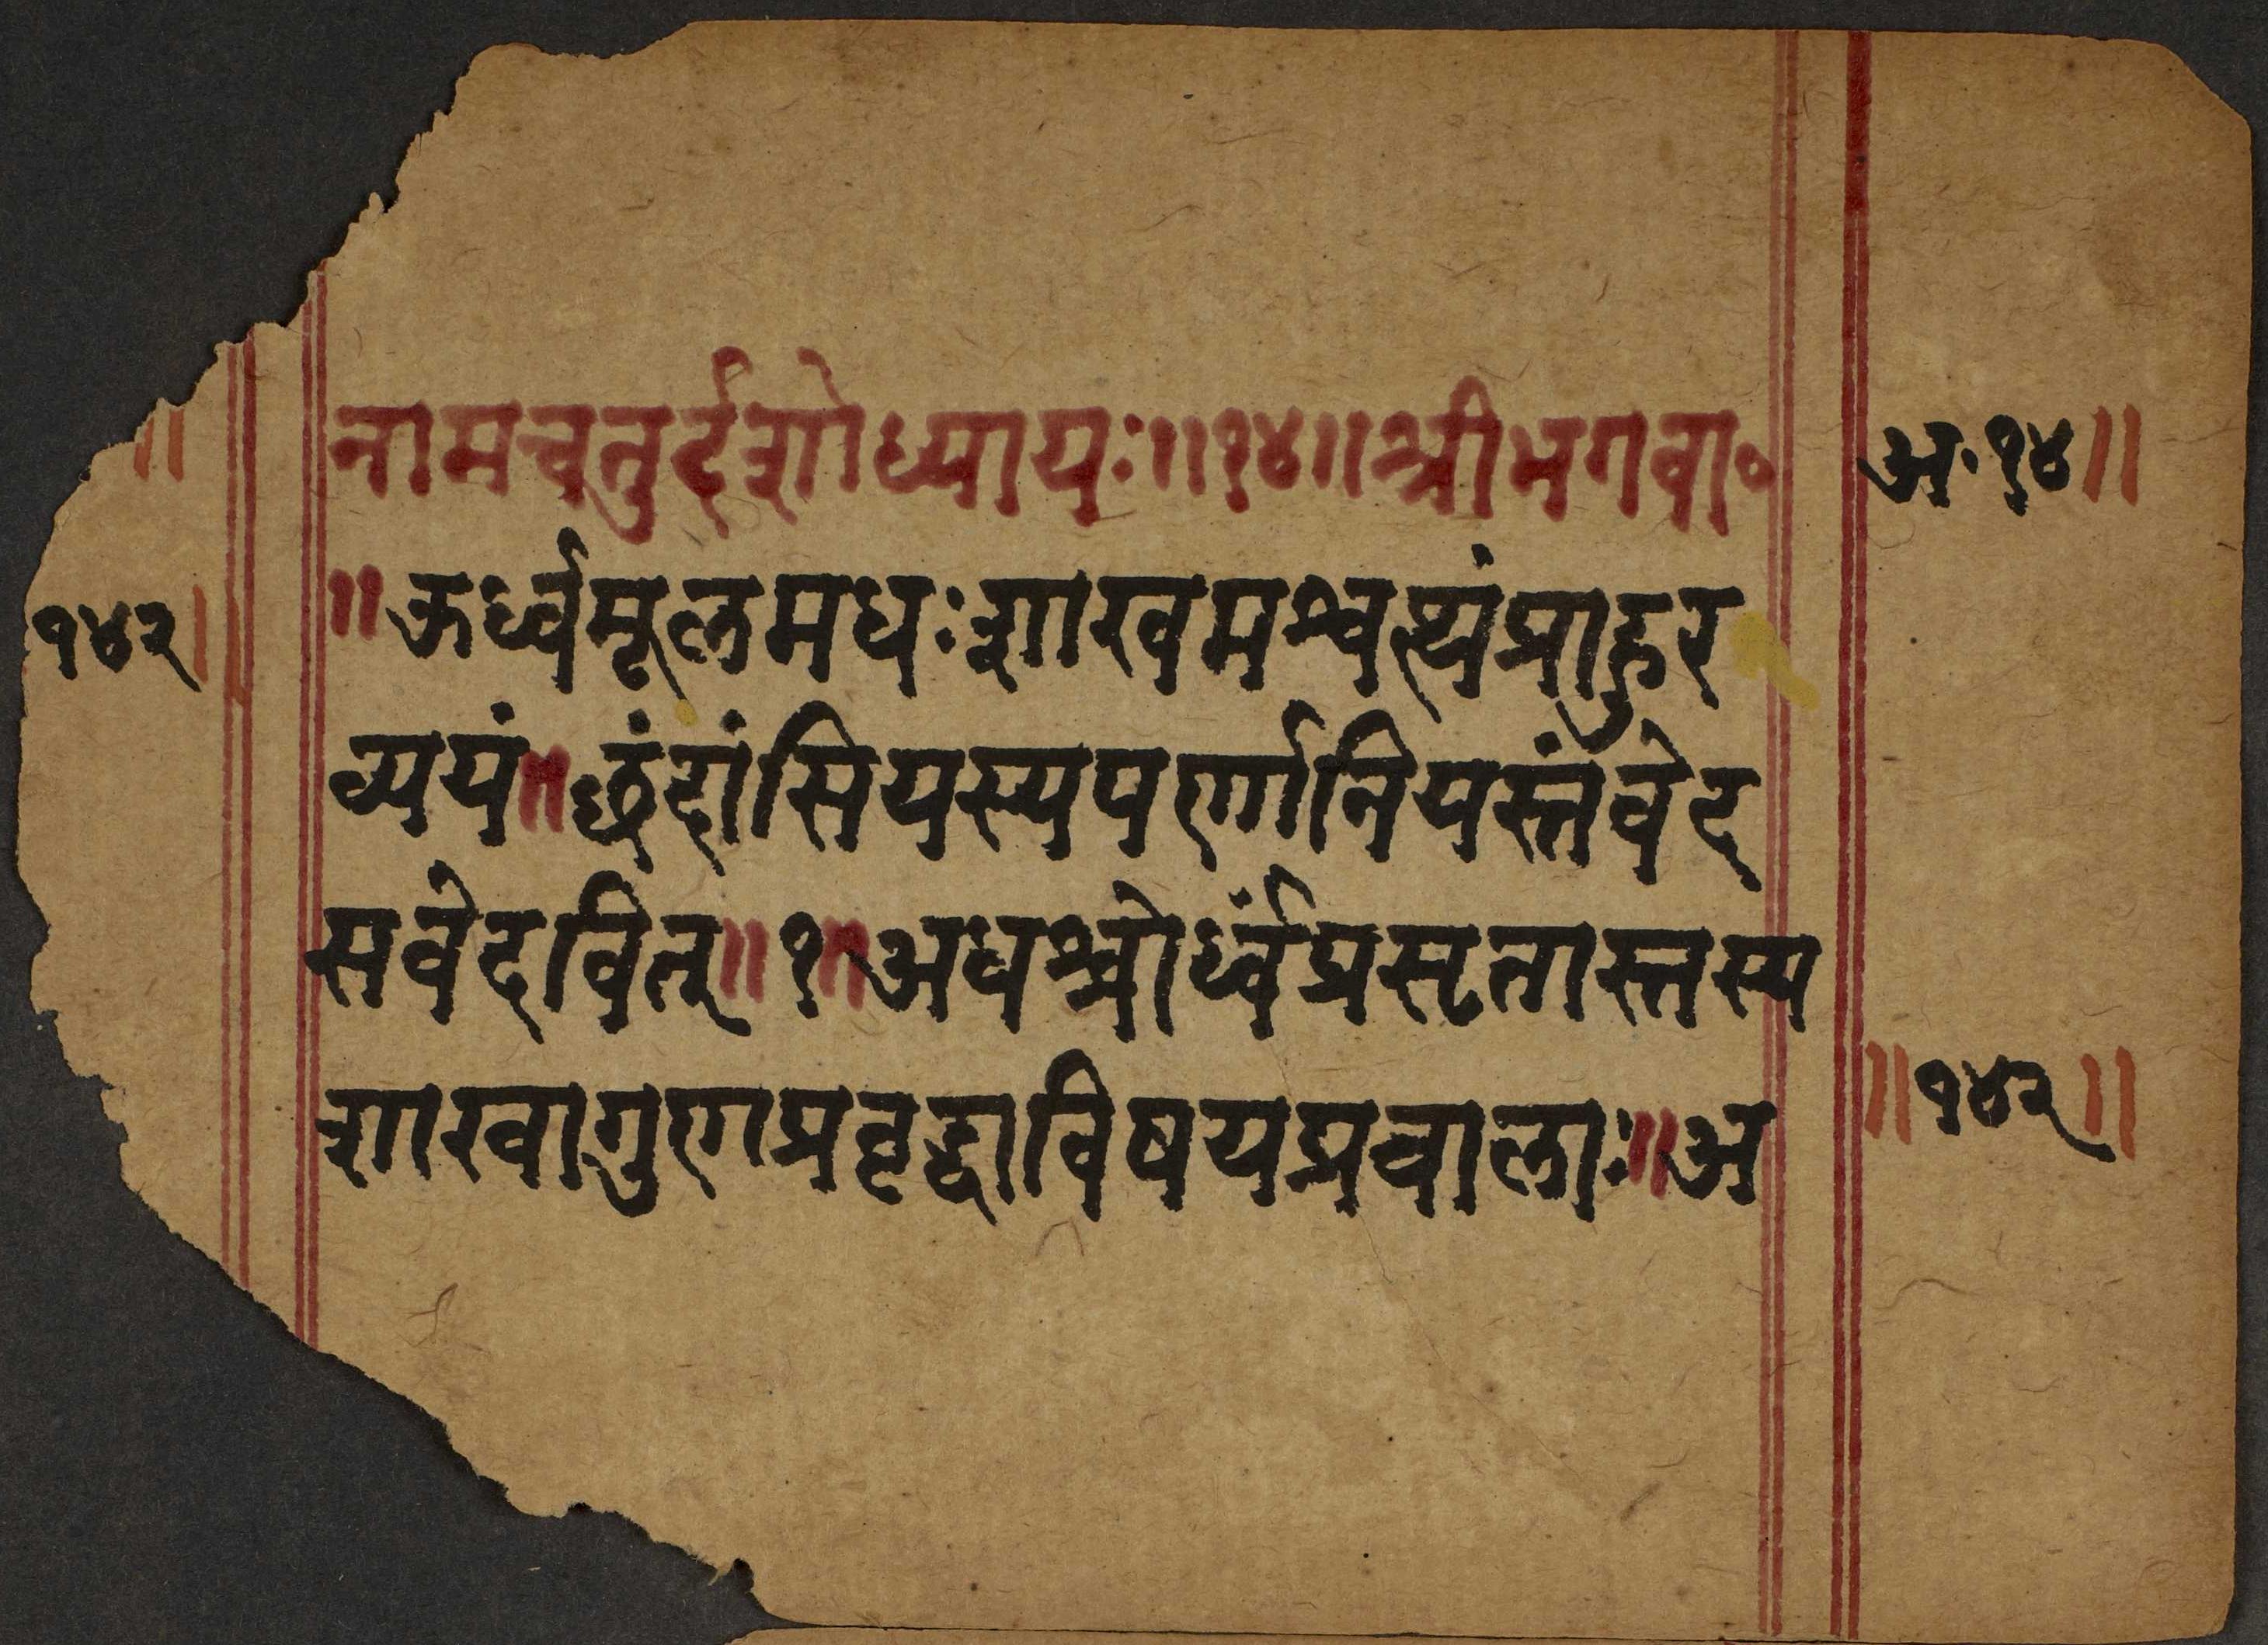 नामचतुर्दशोध्यायः॥१४॥श्रीभगवा०
अ·१४॥
॥ऊर्ध्वमूलमधःशाखमश्वत्थंप्राहुर
१४२॥
व्ययं॥छंदांसियस्यपर्णानियस्तंवेद
सवेदवित्॥१॥अधश्चोर्ध्वंप्रसृतास्तस्य
शाखागुणप्रवृद्धाविषयप्रवालाः॥अ
॥१४२॥